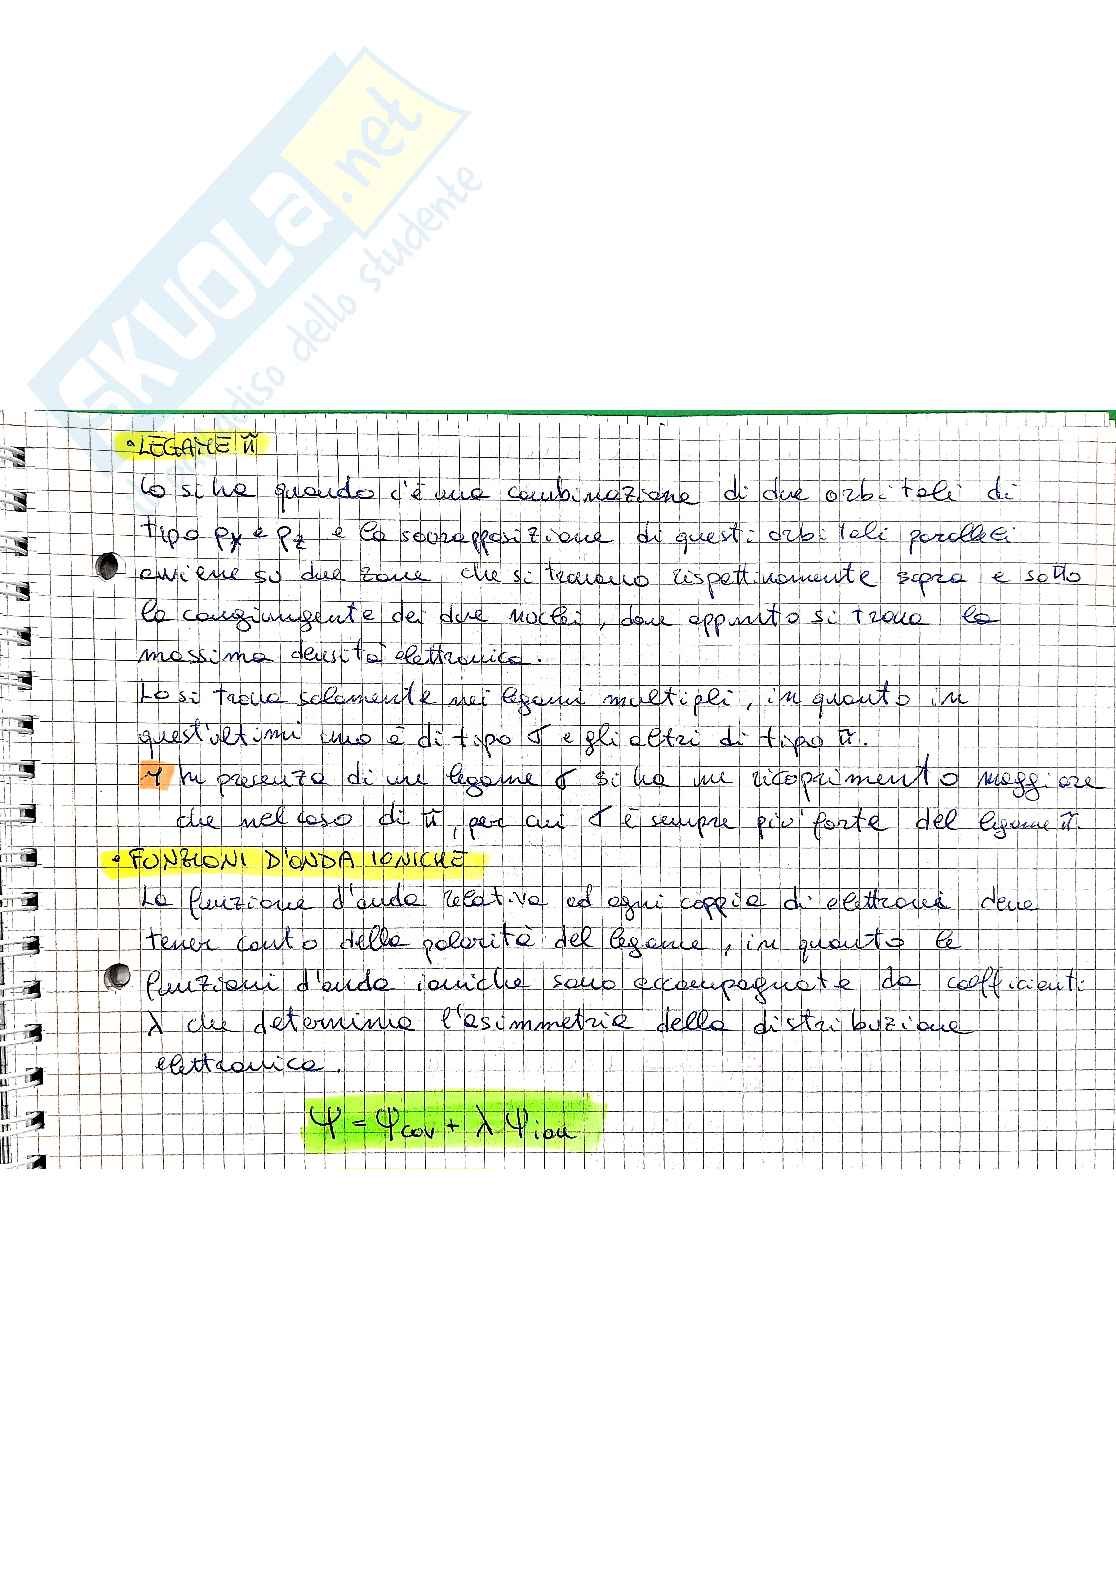 SKUOLA.net
paradiso dello studente
• LEGAME π
Lo si ha quando c'è una combinazione di due orbitali di
tipo px e pz e la sovrapposizione di questi orbitali paralleli
avviene su due zone, che si trovano rispettivamente sopra e sotto
la congiungente dei due nuclei, dove appunto si trova la
massima densità elettronica.
Lo si trova solamente nei legami multipli, in quanto in
quest'ultimi uno è di tipo σ e gli altri di tipo π.
In presenza di un legame σ si ha un ricoprimento maggiore
che nel caso di π, per cui σ è sempre più forte del legame π.
• FUNZIONI D'ONDA IONICHE
La funzione d'onda relativa ad ogni coppia di elettroni deve
tener conto della polarità del legame, in quanto le
funzioni d'onda ioniche sono accompagnate da coefficienti
λ che determina l'asimmetria della distribuzione
elettronica.
Ψ = Ψcov + λ Ψion